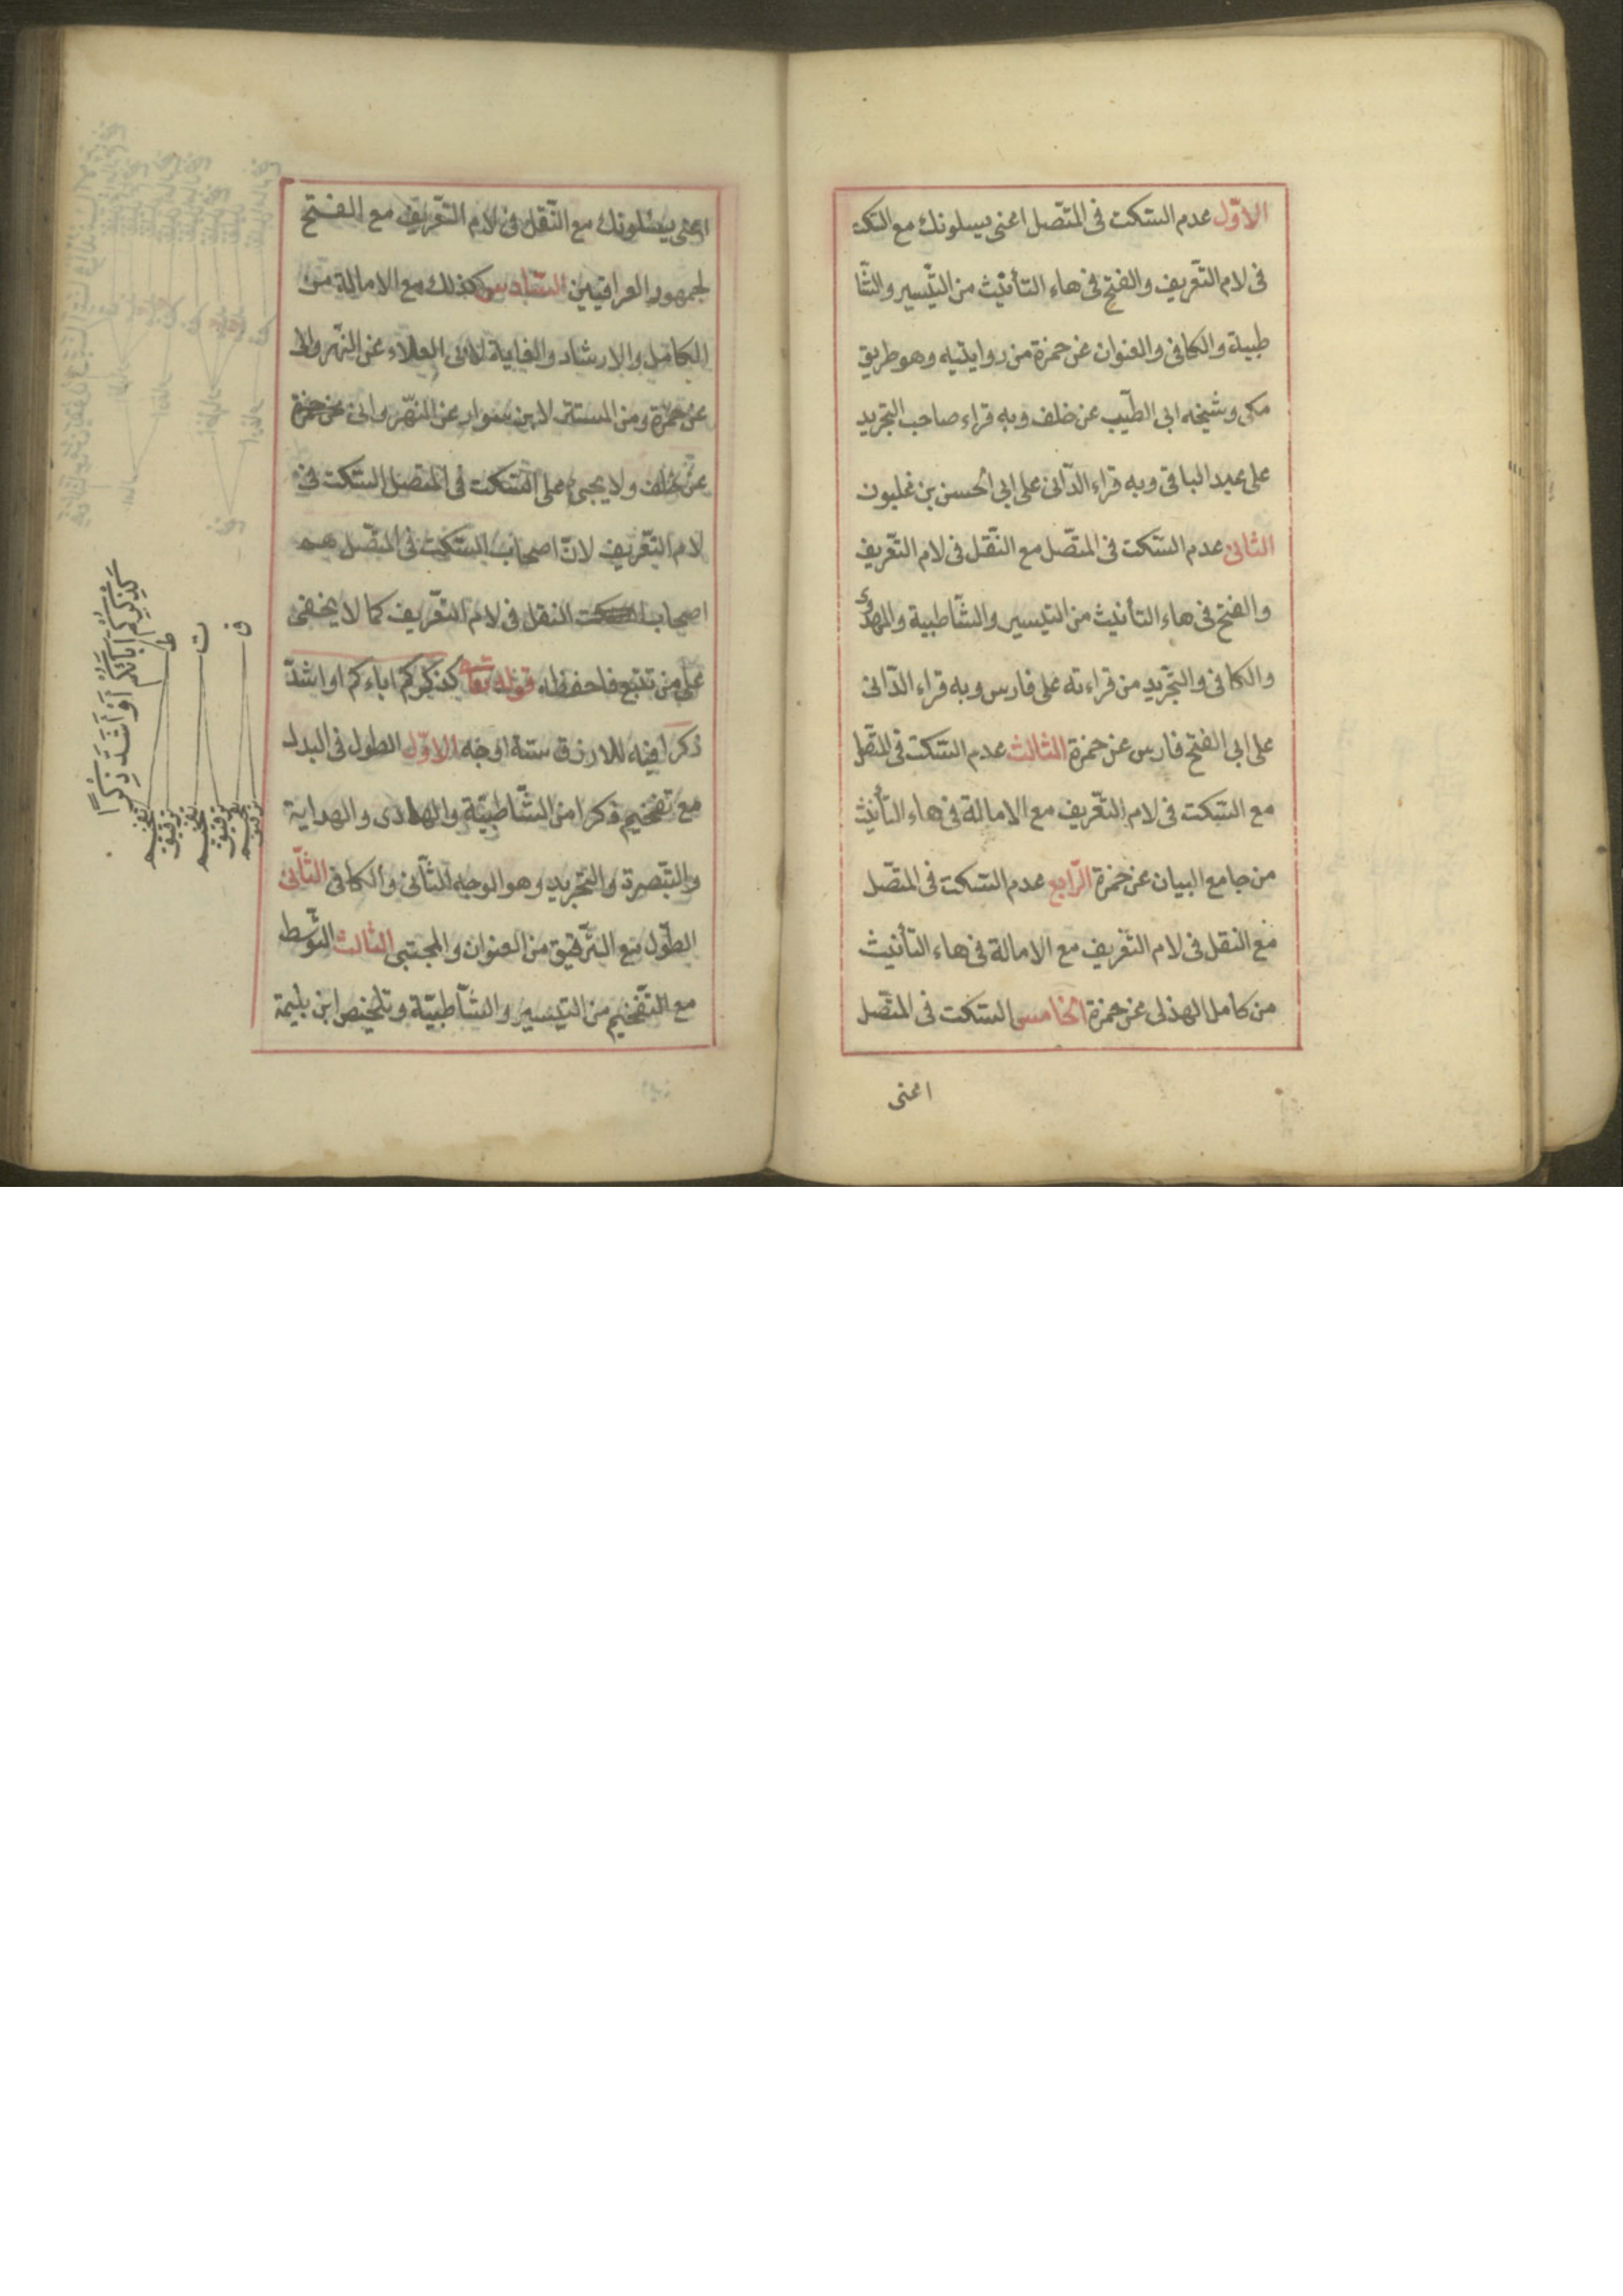 الاوّل عدم السّكت فى المتّصل اعنى يسلونك مع السّكت
فى لام التّعريف والفتح فى هاء التأنيث من التّيسير والشّا
طبية والكافى والعنوان عن حمزة من روايتيه وهو طريق
مكى وشيخه ابى الطّيب عن خلف وبه قراء صاحب التجريد
على عبد الباقى وبه قراء الدّانى على ابى الحسن بن غلبون
الثانى عدم السّكت فى المتّصل مع النّقل فى لام التّعريف
والفتح فى هاء التأنيث من التيسير والشّاطبية والهادى
والكافى والتّجريد من قراءته على فارس وبه قراء الدّانى
على ابى الفتح فارس عن حمزة الثالث عدم السّكت فى المتّصل
مع السّكت فى لام التّعريف مع الامالة فى هاء التأنيث
من جامع البيان عن حمزة الرّابع عدم السّكت فى المتّصل
مع النقل فى لام التّعريف مع الامالة فى هاء التأنيث
من كامل الهذلى عن حمزة الخامس السّكت فى المتّصل
اعنى
اعنى يسئلونك مع النّقل فى لام التّعريف مع الفتح
لجمهور العراقيين السّادس كذلك مع الامالة من
الكامل والارشاد والغاية لابى العلاء عن النّهروانى
عن حمزة ومن المستنير لابن سوار عن النّهروانى عن حمزة
عن خلف ولا يجئ على السّكت فى المتّصل السّكت فى
لام التّعريف لانّ اصحاب السّكت فى المتّصل هم
اصحاب النقل فى لام التّعريف كما لا يخفى
على من تتبع فاحفظه قوله تعا كذكركم اباءكم او اشدّ
ذكرا فيه للازرق ستة اوجه الاوّل الطول فى البدل
مع تفخيم ذكرا من الشّاطبيّة والهادى والهداية
والتّبصرة والتّجريد وهو الوجه الثّانى والكافى الثّانى
الطّول مع التّرقيق من العنوان والمجتبى الثالث التّوسّط
مع التّفخيم من التيسير والشّاطبيّة وتلخيص ابن بليمة
كَذِكْرِكُمْ اٰبَائَكُمْ اَوْ اَشَدَّ ذِكْرًا
ط
ت
ق
تفخيم
ترقيق
تفخيم
ترقيق
تفخيم
ترقيق